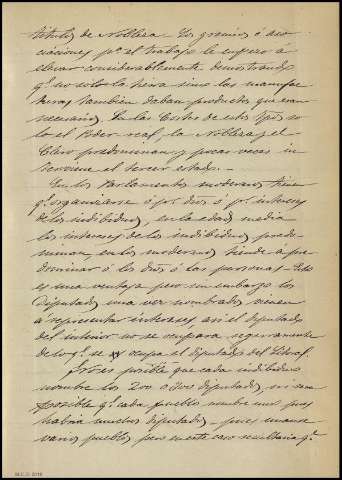 títulos de Nobleza. Los gremios ó aso
ciaciones pr. el trabajo le empezó á
elevar considerablemente demostrando
q. no solo la tierra sino las manufac
turas también daban productos que eran
necesarios. En las Cortes de estos tpos. so
lo el Poder real, la Nobleza y el
Clero predominan y pocas veces in
terviene el tercer estado.—
En los Parlamentos modernos tiene
q. organizarse ó pr. dros ó pr. intereses
de los indibiduos, en la edad media
los intereses de los indibiduos predo-
minan, en los modernos tiende á pre-
dominar ó los dros ó las personas — Esto
es una ventaja pero sin embargo los
Diputados una vez nombrados vienen
á representar intereses así el diputado
del interior no se ocupara seguramente
de lo q. se ocupa el diputado del Litoral
No es posible que cada indibiduo
nombre los 200 ó 300 diputados, ni sera
posible q. cada pueblo nombre uno pues
habria muchos diputados — pues unanse
varios pueblos pero en este caso resultaria q.
M.C.D. 2018